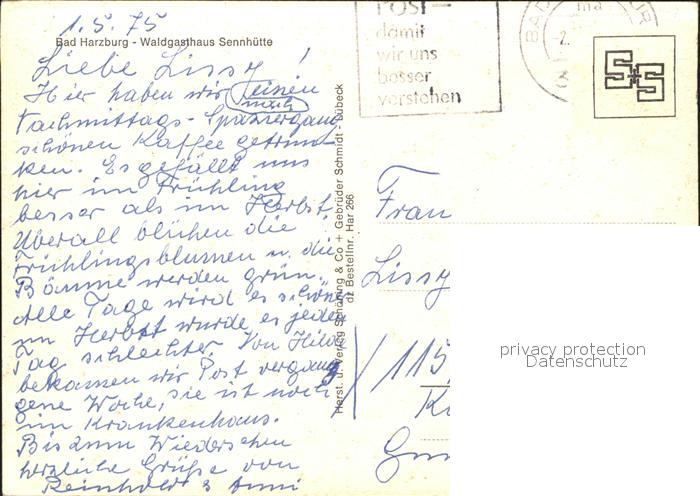 1.5.75
Bad Harzburg - Waldgasthaus Sennhütte
Liebe Lissy!
Hier haben wir nach einem
Nachmittags-Spaziergang
schönen Kaffee getrun-
ken. Es gefällt uns
hier im Frühling
besser als im Herbst.
Überall blühen die
Frühlingsblumen u. die
Bäume werden grün.
Alle Tage wird es schöner
im Herbst wurde es jeden
Tag schlechter. Von
bekamen wir Post vergan-
gene Woche, sie ist noch
im Krankenhaus.
Bis zum Wiedersehen
herzliche Grüße von
Reinhold &
Herst. u. Verlag Schöning & Co + Gebrüder Schmidt - Lübeck
dz Bestellnr. Har 266
POST-
damit
wir uns
besser
verstehen
BAD
S+S
Frau
Lissy
privacy protection
Datenschutz